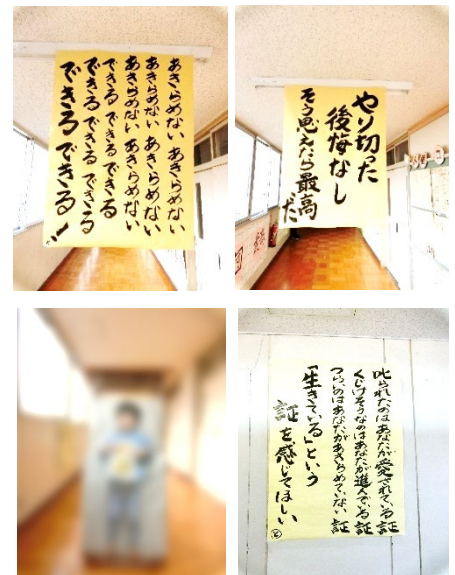 あきらめない あきらめない
あきらめない あきらめない
あきらめない あきらめない
できる できる できる
できる できる できる
できる できる!
やり切った
後悔なし
そう思えたら最高だ
叱られたのはあなたが愛されている証
くじけそうなのはあなたが進んでいる証
つらいのはあなたがあきらめていない証
「生きている」という
証を感じてほしい